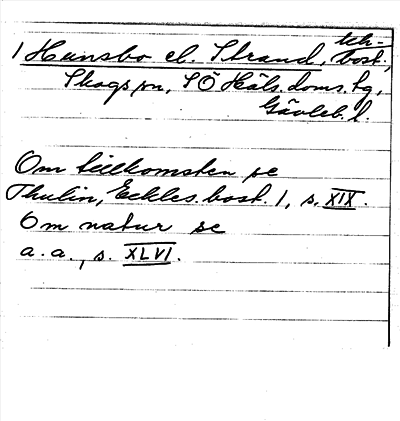 1 Hunsbo el. Strand, kh-
bost.,
Skogs sn, SÖ Häls. doms. fg,
Gävleb. l.
Om tillkomsten se
Thulin, Eckles. bost. 1, s. XIX.
Om natur se
a. a., s. XLVI.